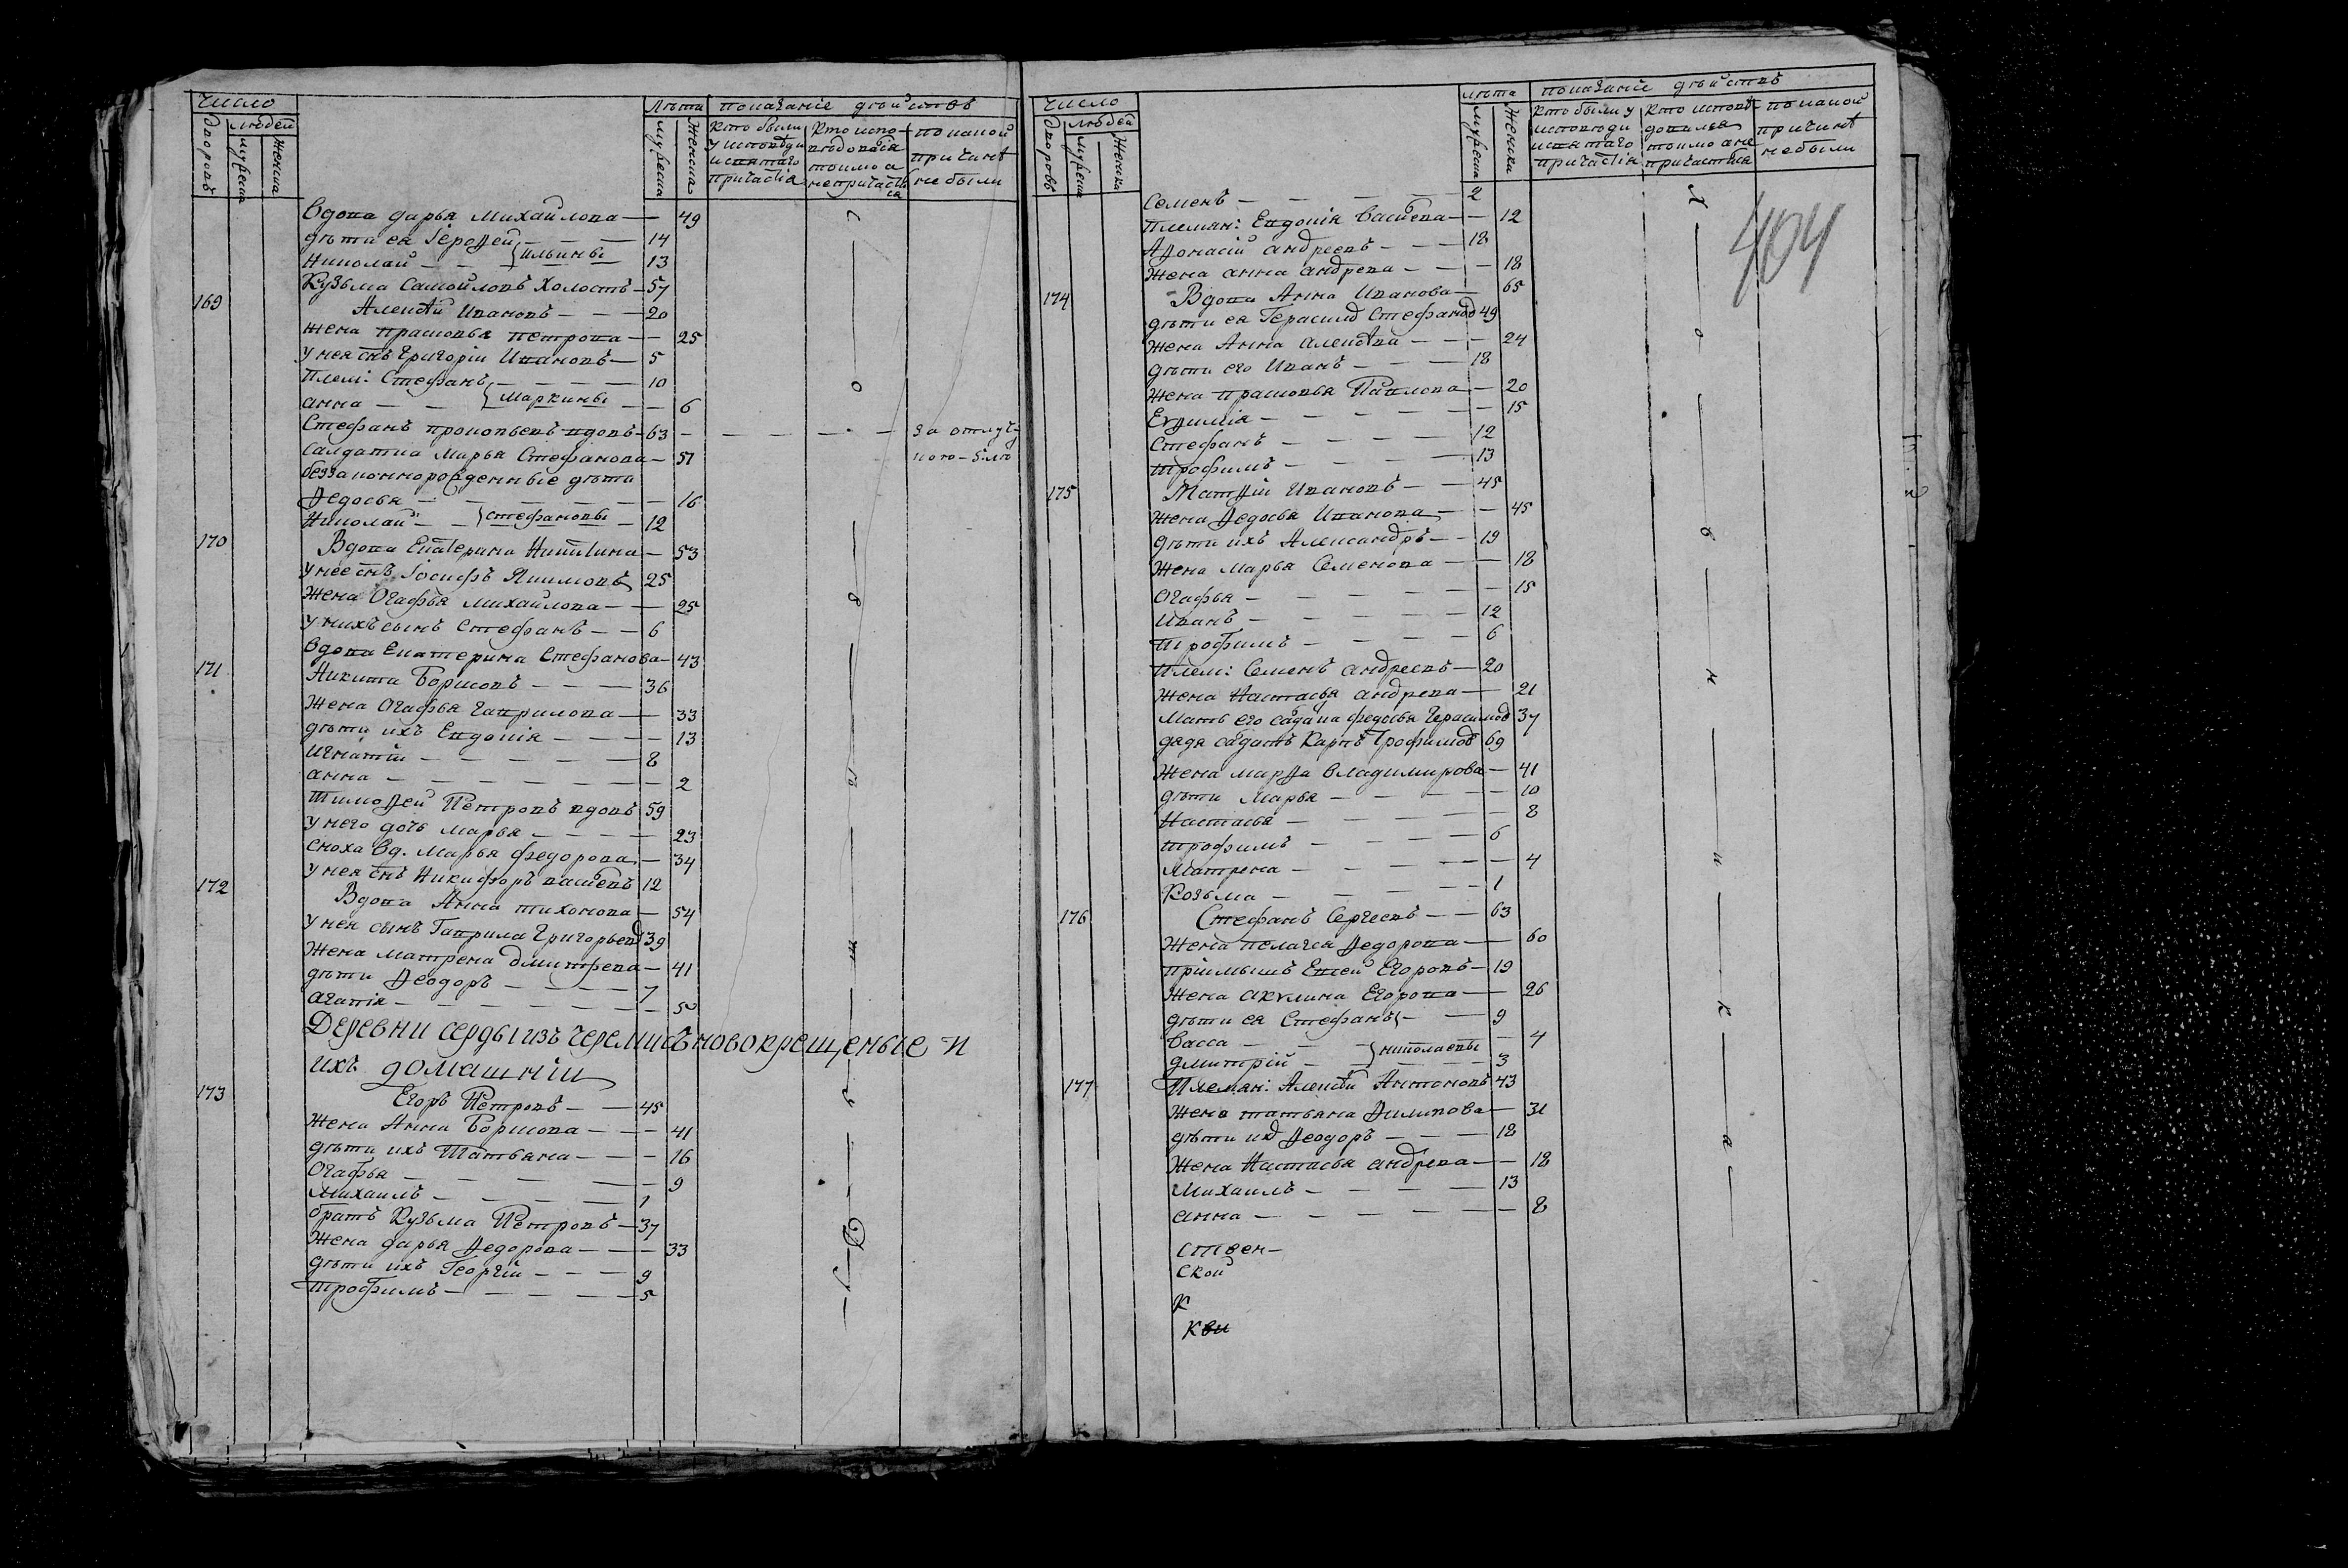 число
дворовъ
людей
мужеска
женска
лѣта
мужеска
женска
показаніе дѣйствъ
кто были у исповѣди и святаго причастія
кто исповѣдовался токмо а непричастился
по какой причинѣ небыли
вдова дарья михайлова — 49
дѣти ея Іерофей — 14
Николай — } Ильины 13
Кузьма Самойловъ холостъ — 57
169 Алексѣй Ивановъ — 20
жена прасковья петрова — 25
у нея снъ Григоріи Ивановъ — 5
Плем: Стефанъ — 10
анна — } Маркины — 6
Стефанъ прокопьевъ вдовъ — 63 — за отлуч-
Салдатка Марья Стефанова — 51 кою
беззаконнорожденные дѣти
Ѳедосья — 16
Николай — } стефановы — 12
170 Вдова Екатерина Никитина — 53
у нее снъ Іосифъ Якимовъ 25
жена Огафья михайлова — 25
у нихъ сынъ Стефанъ — 6
вдова Екатерина Стефанова — 43
171 Никита Борисовъ — 36
Жена Огафья гаврилова — 33
дѣти ихъ Евдокія — 13
Игнатіи — 8
анна — 2
Тимоѳей Петровъ вдовъ 59
у него дочь марья — 23
сноха вд. Марья федорова — 34
у нея снъ Никифоръ васильевъ 12
172 Вдова Анна тихонова — 54
у нея сынъ Гаврила Григорьевъ 39
жена матрена дмитрева — 41
дѣти Ѳеодоръ — 7
агапія — 5
Деревни серды изъ черемисъ новокрещеные и
ихъ домашніи
173 Егоръ Петровъ — 45
жена Анна Борисова — 41
дѣти ихъ Татьяна — 16
Огафья — 9
михаилъ — 1
братъ Кузьма Петровъ — 37
жена дарья Ѳедорова — 33
дѣти ихъ Георгіи — 9
трофимъ — 5
число
дворовъ
людей
мужеска
женска
лѣта
мужеска
женска
показаніе дѣйствъ
кто были у исповѣди и святаго причастія
кто исповѣдовался токмо а не причастился
по какой причинѣ небыли
404
семенъ — 2
племян: Евдокія васильева — 12
Афонасій андреевъ — 18
жена анна андрева — 18
174 Вдова Анна Иванова — 65
дѣти ея Герасимъ Стефановъ 49
жена Анна алексѣева — 24
дѣти его Иванъ — 18
жена прасковья Павлова — 20
Евфимія — 15
Стефанъ — 12
трофимъ — 13
175 Матѳіи Ивановъ — 45
жена Ѳедосья Иванова — 45
дѣти ихъ Александръ — 19
жена марья Семенова — 18
Огафья — 15
иванъ — 12
трофимъ — 6
плем: Семенъ андреевъ — 20
жена Настасья андрева — 21
мать его салдатка федосья Герасимова 37
дядя салдатъ Карпъ Трофимовъ 69
жена марѳа владимирова — 41
дѣти Марья — 10
Настасья — 8
трофимъ — 6
матрена — 4
Козьма — 1
176 Стефанъ Сергеевъ — 63
жена пелагея Ѳедорова — 60
пріимышъ Евсей Егоровъ — 19
жена акулина Егорова — 26
дѣти ея Стефанъ — 9
васса — } николаевы — 4
дмитрій — 3
177 Племян: Алексѣй Антоновъ 43
жена татьяна Ѳилипова — 31
дѣти ихъ Ѳеодоръ — 18
жена Настасья андрева — 18
михаилъ — 13
анна — 8
ствен-
ской
к
кви